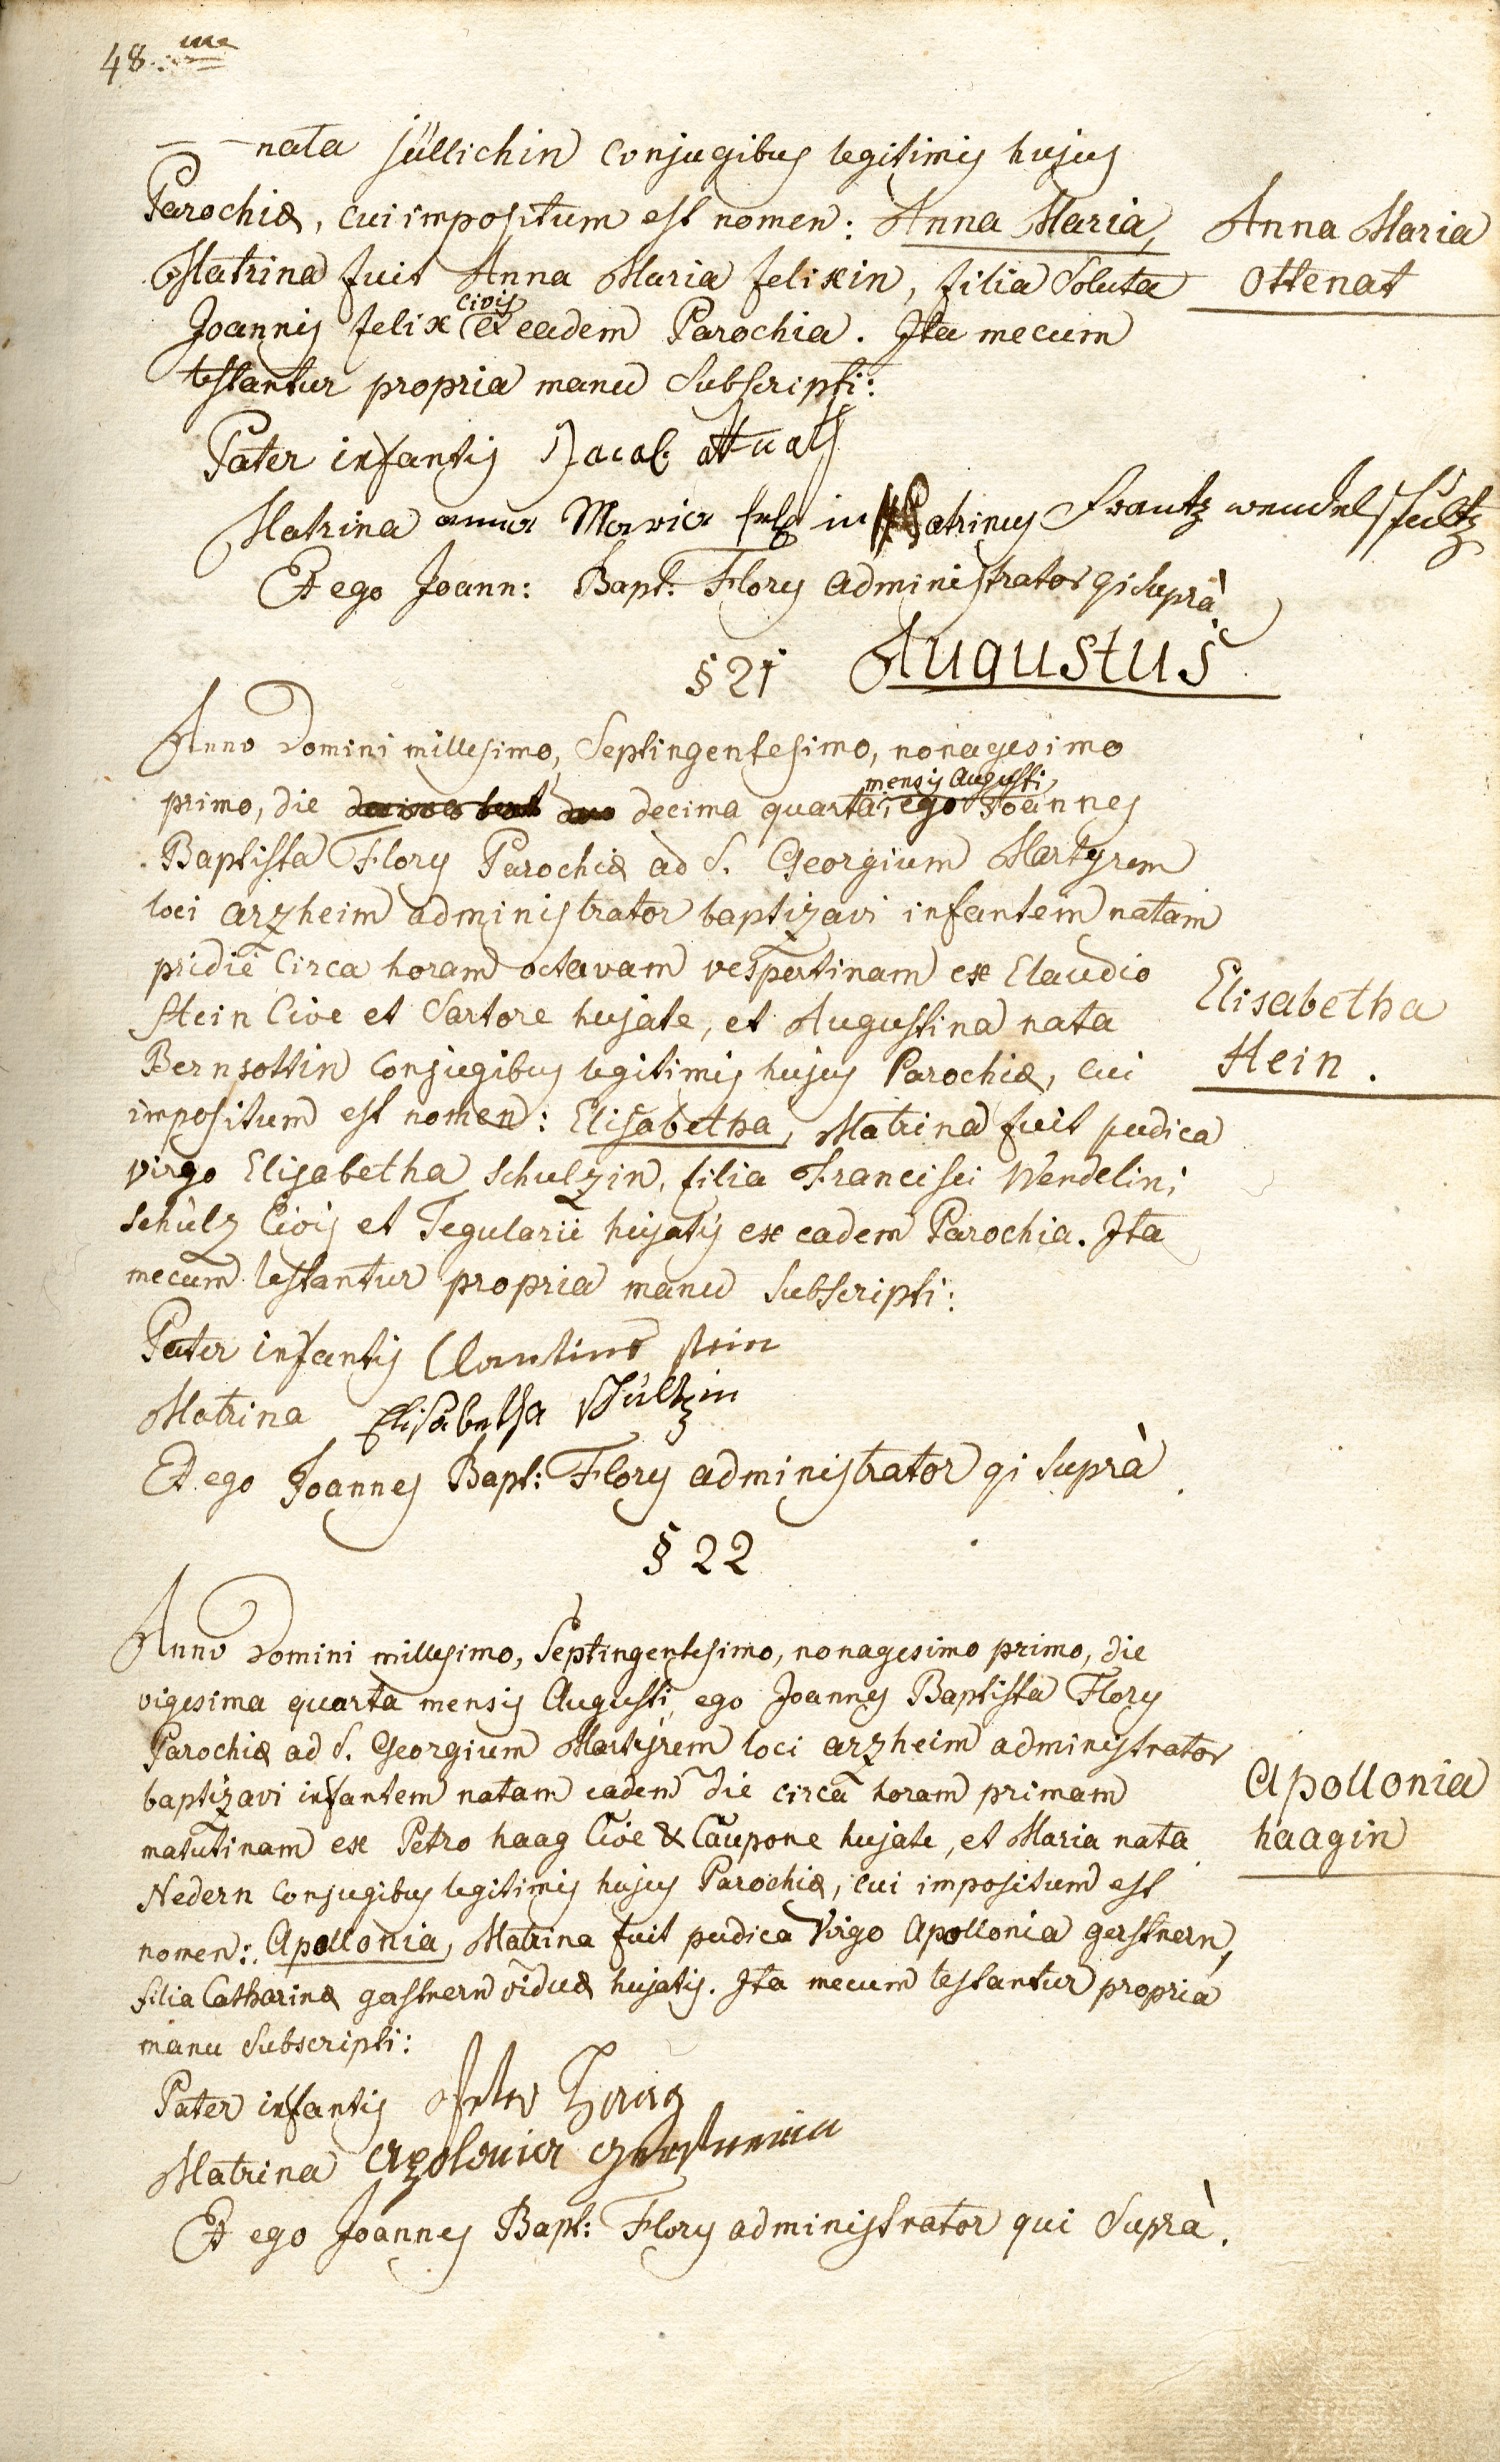 48.me
— —nata jüllichin Conjugibus legitimis hujus
Parochiæ, cui impositum est nomen: Anna Maria,
Anna Maria
Matrina fuit Anna Maria felixin, filia Soluta
Ottenat
civis
Joannis felix ex eadem Parochia. Ita mecum
testantur propria manu Subscripti:
Pater infantis Jacob
Matrina anna Maria in Patrinus Frantz wendel schultz
Et ego Joann: Bapt: Flory administrator qi suprà
§ 21 Augustus
Anno Domini millesimo, Septingentesimo, nonagesimo
mensis Augusti,
primo, die decima quarta, ego Joannes
Baptista Flory Parochiæ ad S. Georgium Martyrem
loci arzheim administrator baptizavi infantem natam
pridie Circa horam octavam vespertinam ex Claudio
Stein Cive et Sartore hujate, et Augustina nata
Elisabetha
Bernsottin Conjugibus legitimis hujus Parochiæ, cui
Stein.
impositum est nomen: Elisabetha, Matrina fuit pudica
virgo Elisabetha Schulzin, filia Francisci Wendelini
Schulz Civis et Tegularii hujatis ex eadem Parochia. Ita
mecum testantur propria manu Subscripti:
Pater infantis stein
Matrina Elisabetha schültzin
Et ego Joannes Bapt: Flory administrator qi suprà.
§ 22
Anno Domini millesimo, Septingentesimo, nonagesimo primo, die
vigesima quarta mensis Augusti, ego Joannes Baptista Flory
Parochiæ ad S. Georgium Martyrem loci arzheim administrator
baptizavi infantem natam eadem die circa horam primam
Apollonia
matutinam ex Petro haag Cive & Caupone hujate, et Maria nata
haagin
Nedern Conjugibus legitimis hujus Parochiæ, cui impositum est
nomen: Apollonia, Matrina fuit pudica Virgo Apollonia gerstnern,
filia Catharinæ gerstnern viduæ hujatis. Ita mecum testantur propria
manu Subscripti:
Pater infantis Peter Haag
Matrina apolonia gerstnerin
Et ego Joannes Bapt: Flory administrator qui Suprà.